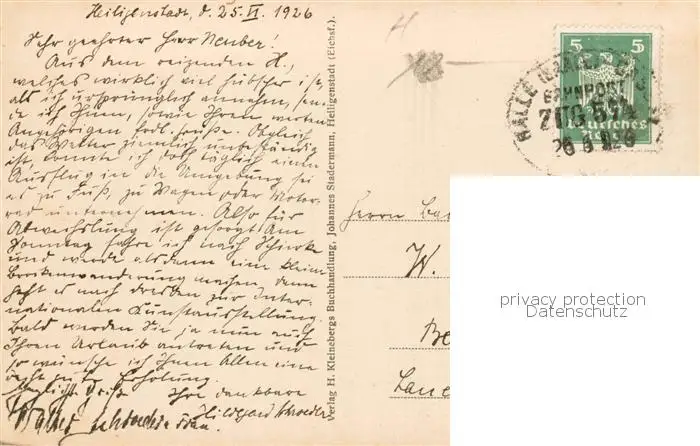 Heiligenstadt, d. 25.VI. 1926
Sehr geehrter Herr Neuber!
Aus dem reizenden H.,
welches wirklich viel hübscher ist,
als ich ursprünglich annahm, sen-
de ich Ihnen, sowie Ihren werten
Angehörigen frdl. Grüße. Obgleich
das Wetter ziemlich unbeständig
ist, konnte ich doch täglich einen
Ausflug in die Umgebung sei
es zu Fuß, zu Wagen oder Motor-
rad unternehmen. Also für
Abwechslung ist gesorgt. Am
Sonntag fahre ich nach Schierke
und werde alsdann eine kleine
Brockenwanderung machen, dann
geht es nach Dresden zur Inter-
nationalen Kunstausstellung.
Bald werden Sie ja nun auch
Ihren Urlaub antreten und
so wünsche ich Ihnen Allen eine
recht gute Erholung.
Ihre dankbare
Hildegard
Frau
Verlag H. Kleinebergs Buchhandlung, Johannes Stadermann, Heiligenstadt (Eichsf.)
5 5
Deutsches
Reich
HALLE
BAHNPOST
ZUG
26 6
Herrn
W.
Be
privacy protection
Datenschutz